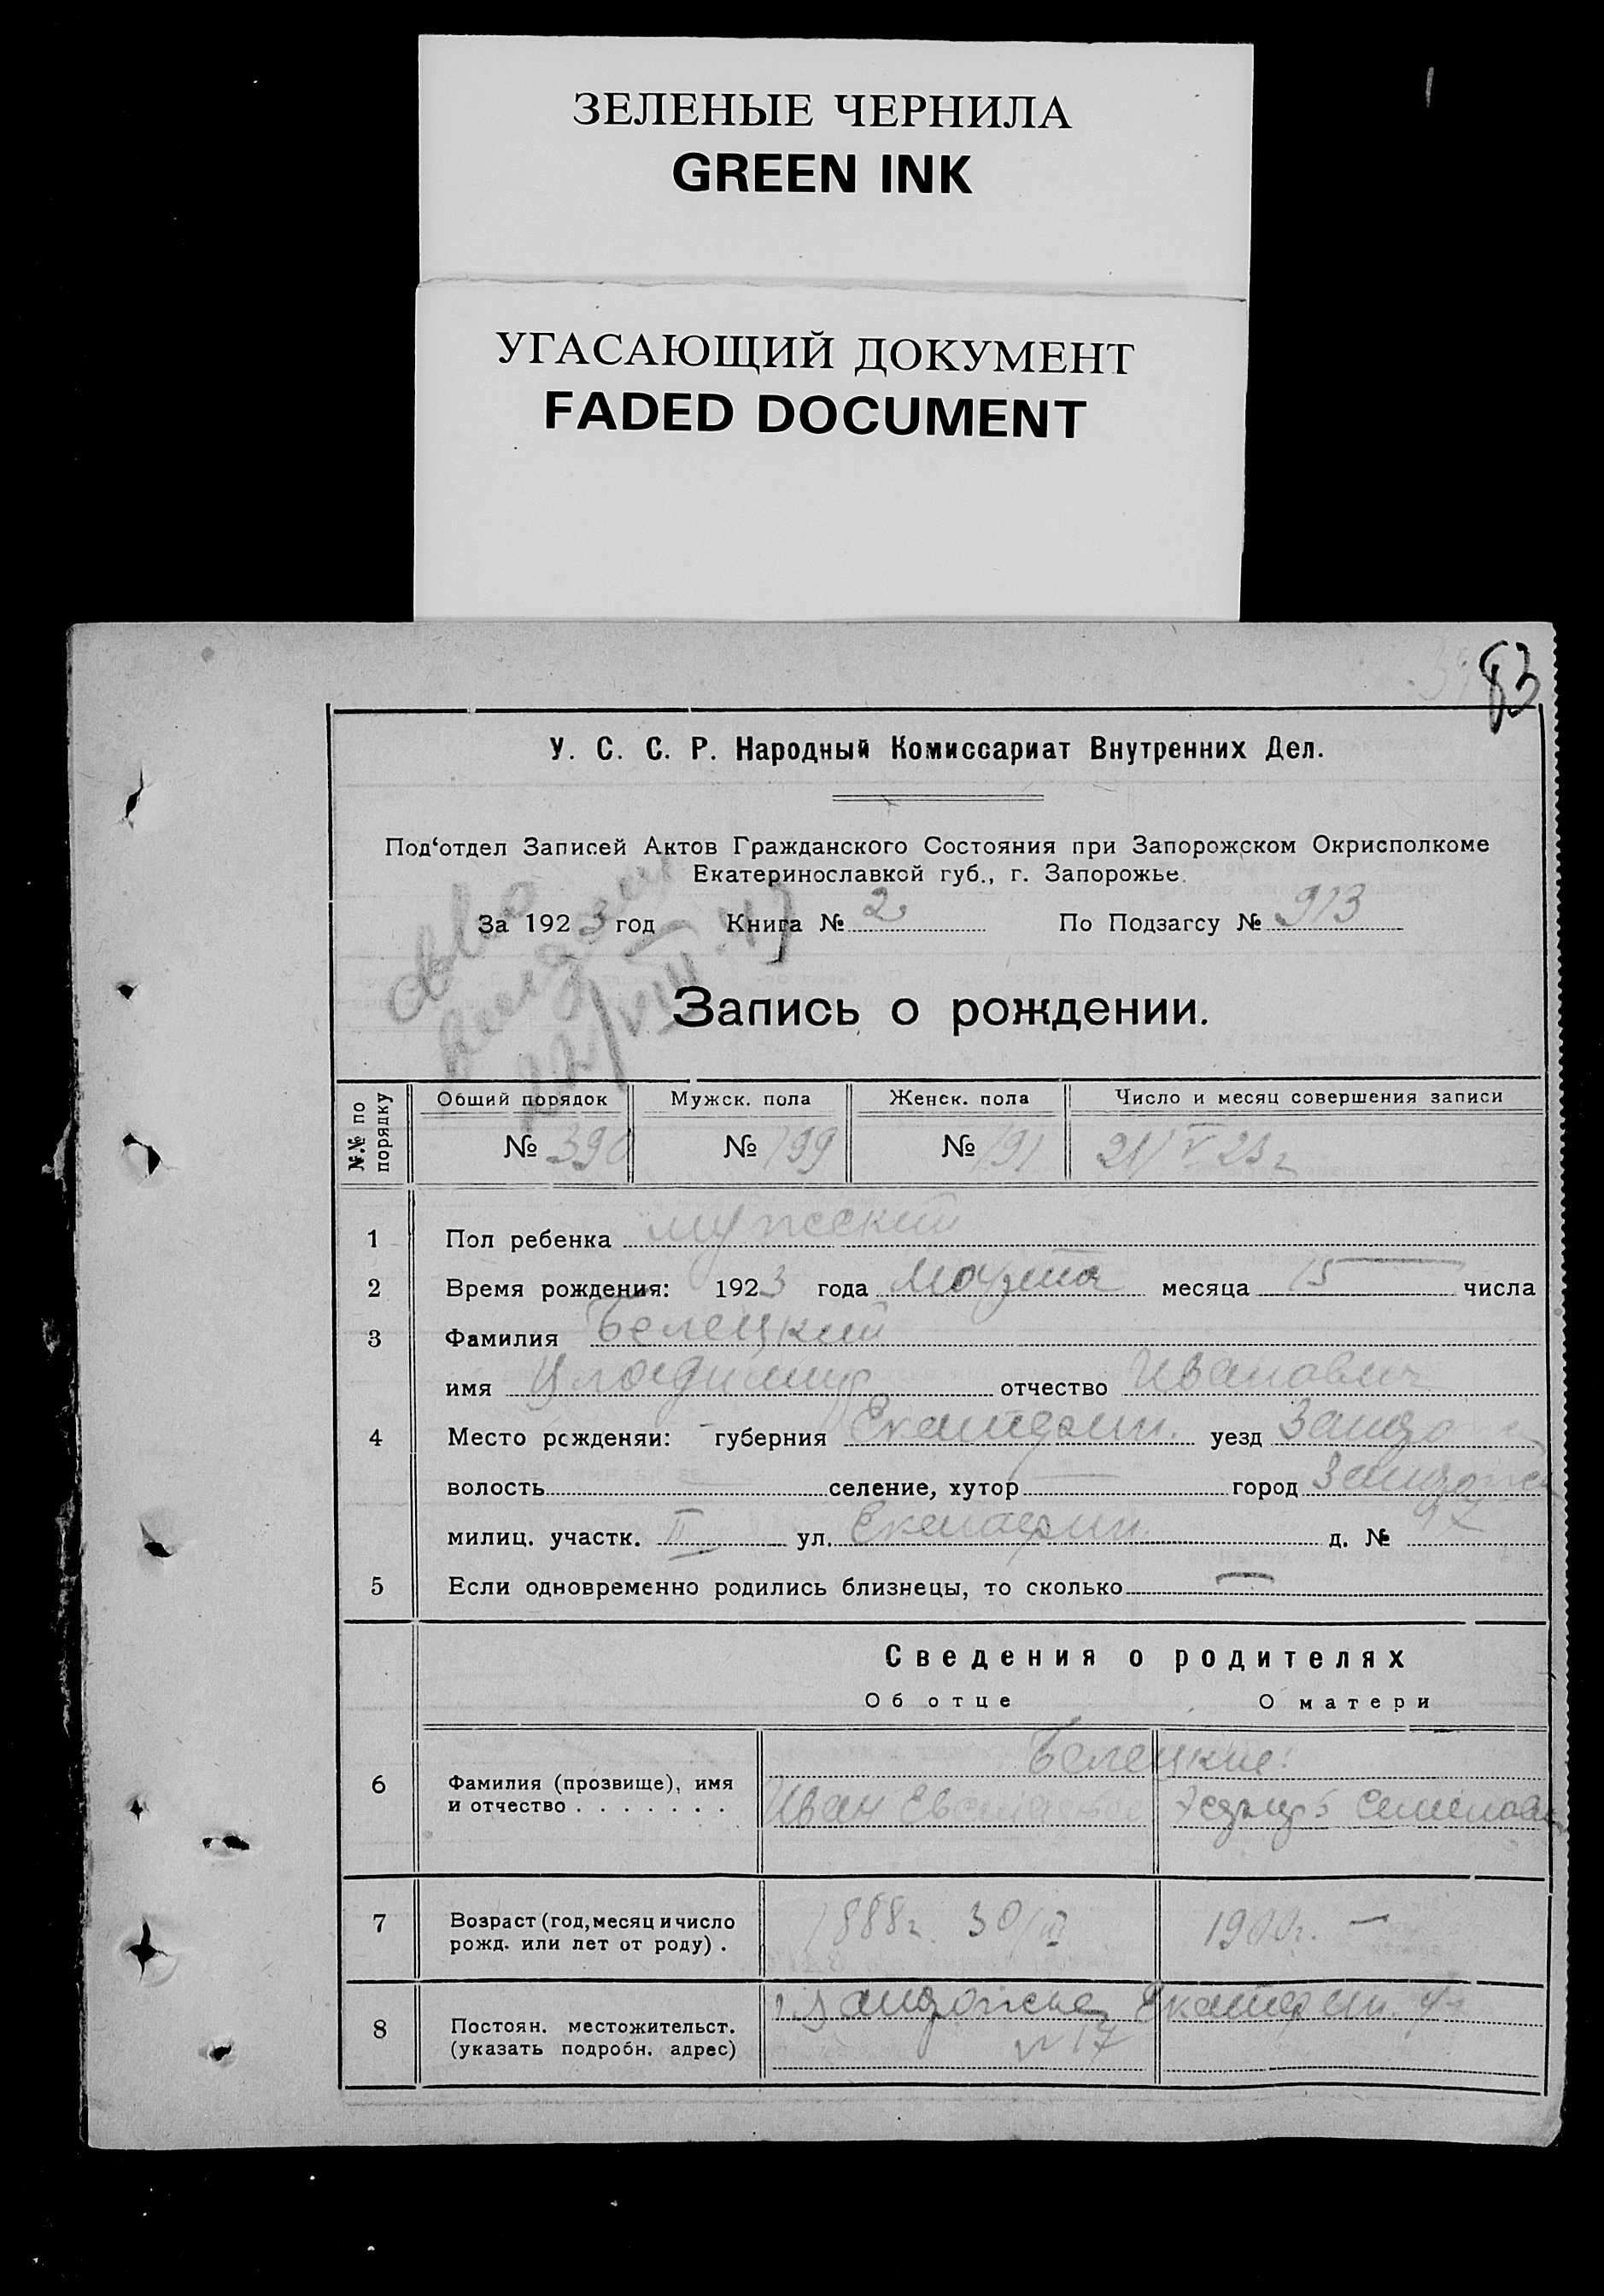 ЗЕЛЕНЫЕ ЧЕРНИЛА
GREEN INK
УГАСАЮЩИЙ ДОКУМЕНТ
FADED DOCUMENT
83
У. С. С. Р. Народный Комиссариат Внутренних Дел.
Под‘отдел Записей Актов Гражданского Состояния при Запорожском Окрисполкоме
Екатеринославкой губ., г. Запорожье.
За 1923 год Книга № 2 По Подзагсу № 913
22/VIII-47
Запись о рождении.
№№ по порядку Общий порядок Мужск. пола Женск. пола Число и месяц совершения записи
№ 390 № 199 № 191 21/V 23 г
1 Пол ребенка мужский
2 Время рождения: 1923 года Марта месяца 15 числа
3 Фамилия Белецкий
имя Владимир отчество Иванович
4 Место рсжденяи: губерния Екатерин. уезд Запор
волость селение, хутор город Запорож
милиц. участк. II ул. Екатерин. д. № 17
5 Если одновременно родились близнецы, то сколько —
Сведения о родителях
Об отце О матери
Белецкие:
6 Фамилия (прозвище), имя
и отчество . . . . . . . Иван Семенов
7 Возраст (год, месяц и число 1888 г. 30/ 1900 г. —
рожд. или лет от роду) .
8 Постоян. местожительст. г. Запорожье Екатерин. ул.
(указать подробн. адрес) № 17